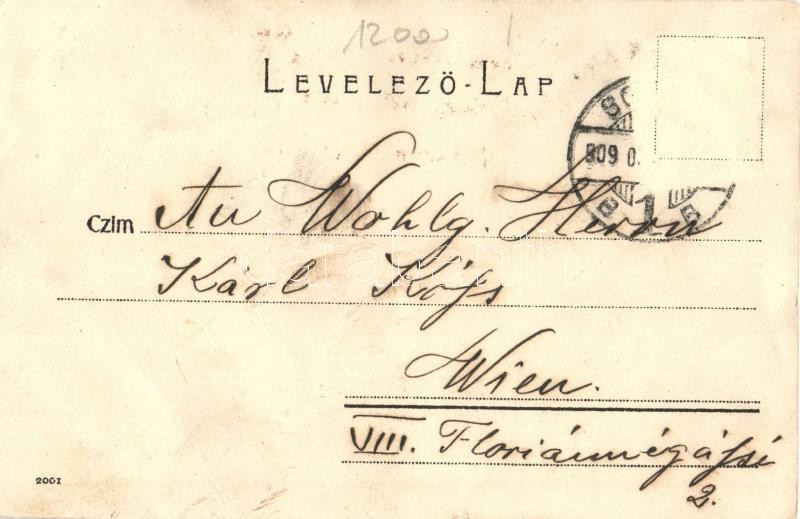 1200
LEVELEZÖ-LAP
SO
909 0
B 1 B
Czim An Wohlg. Herrn
Karl Köfs
Wien.
VIII. Floriánnégáfsi
2.
2001